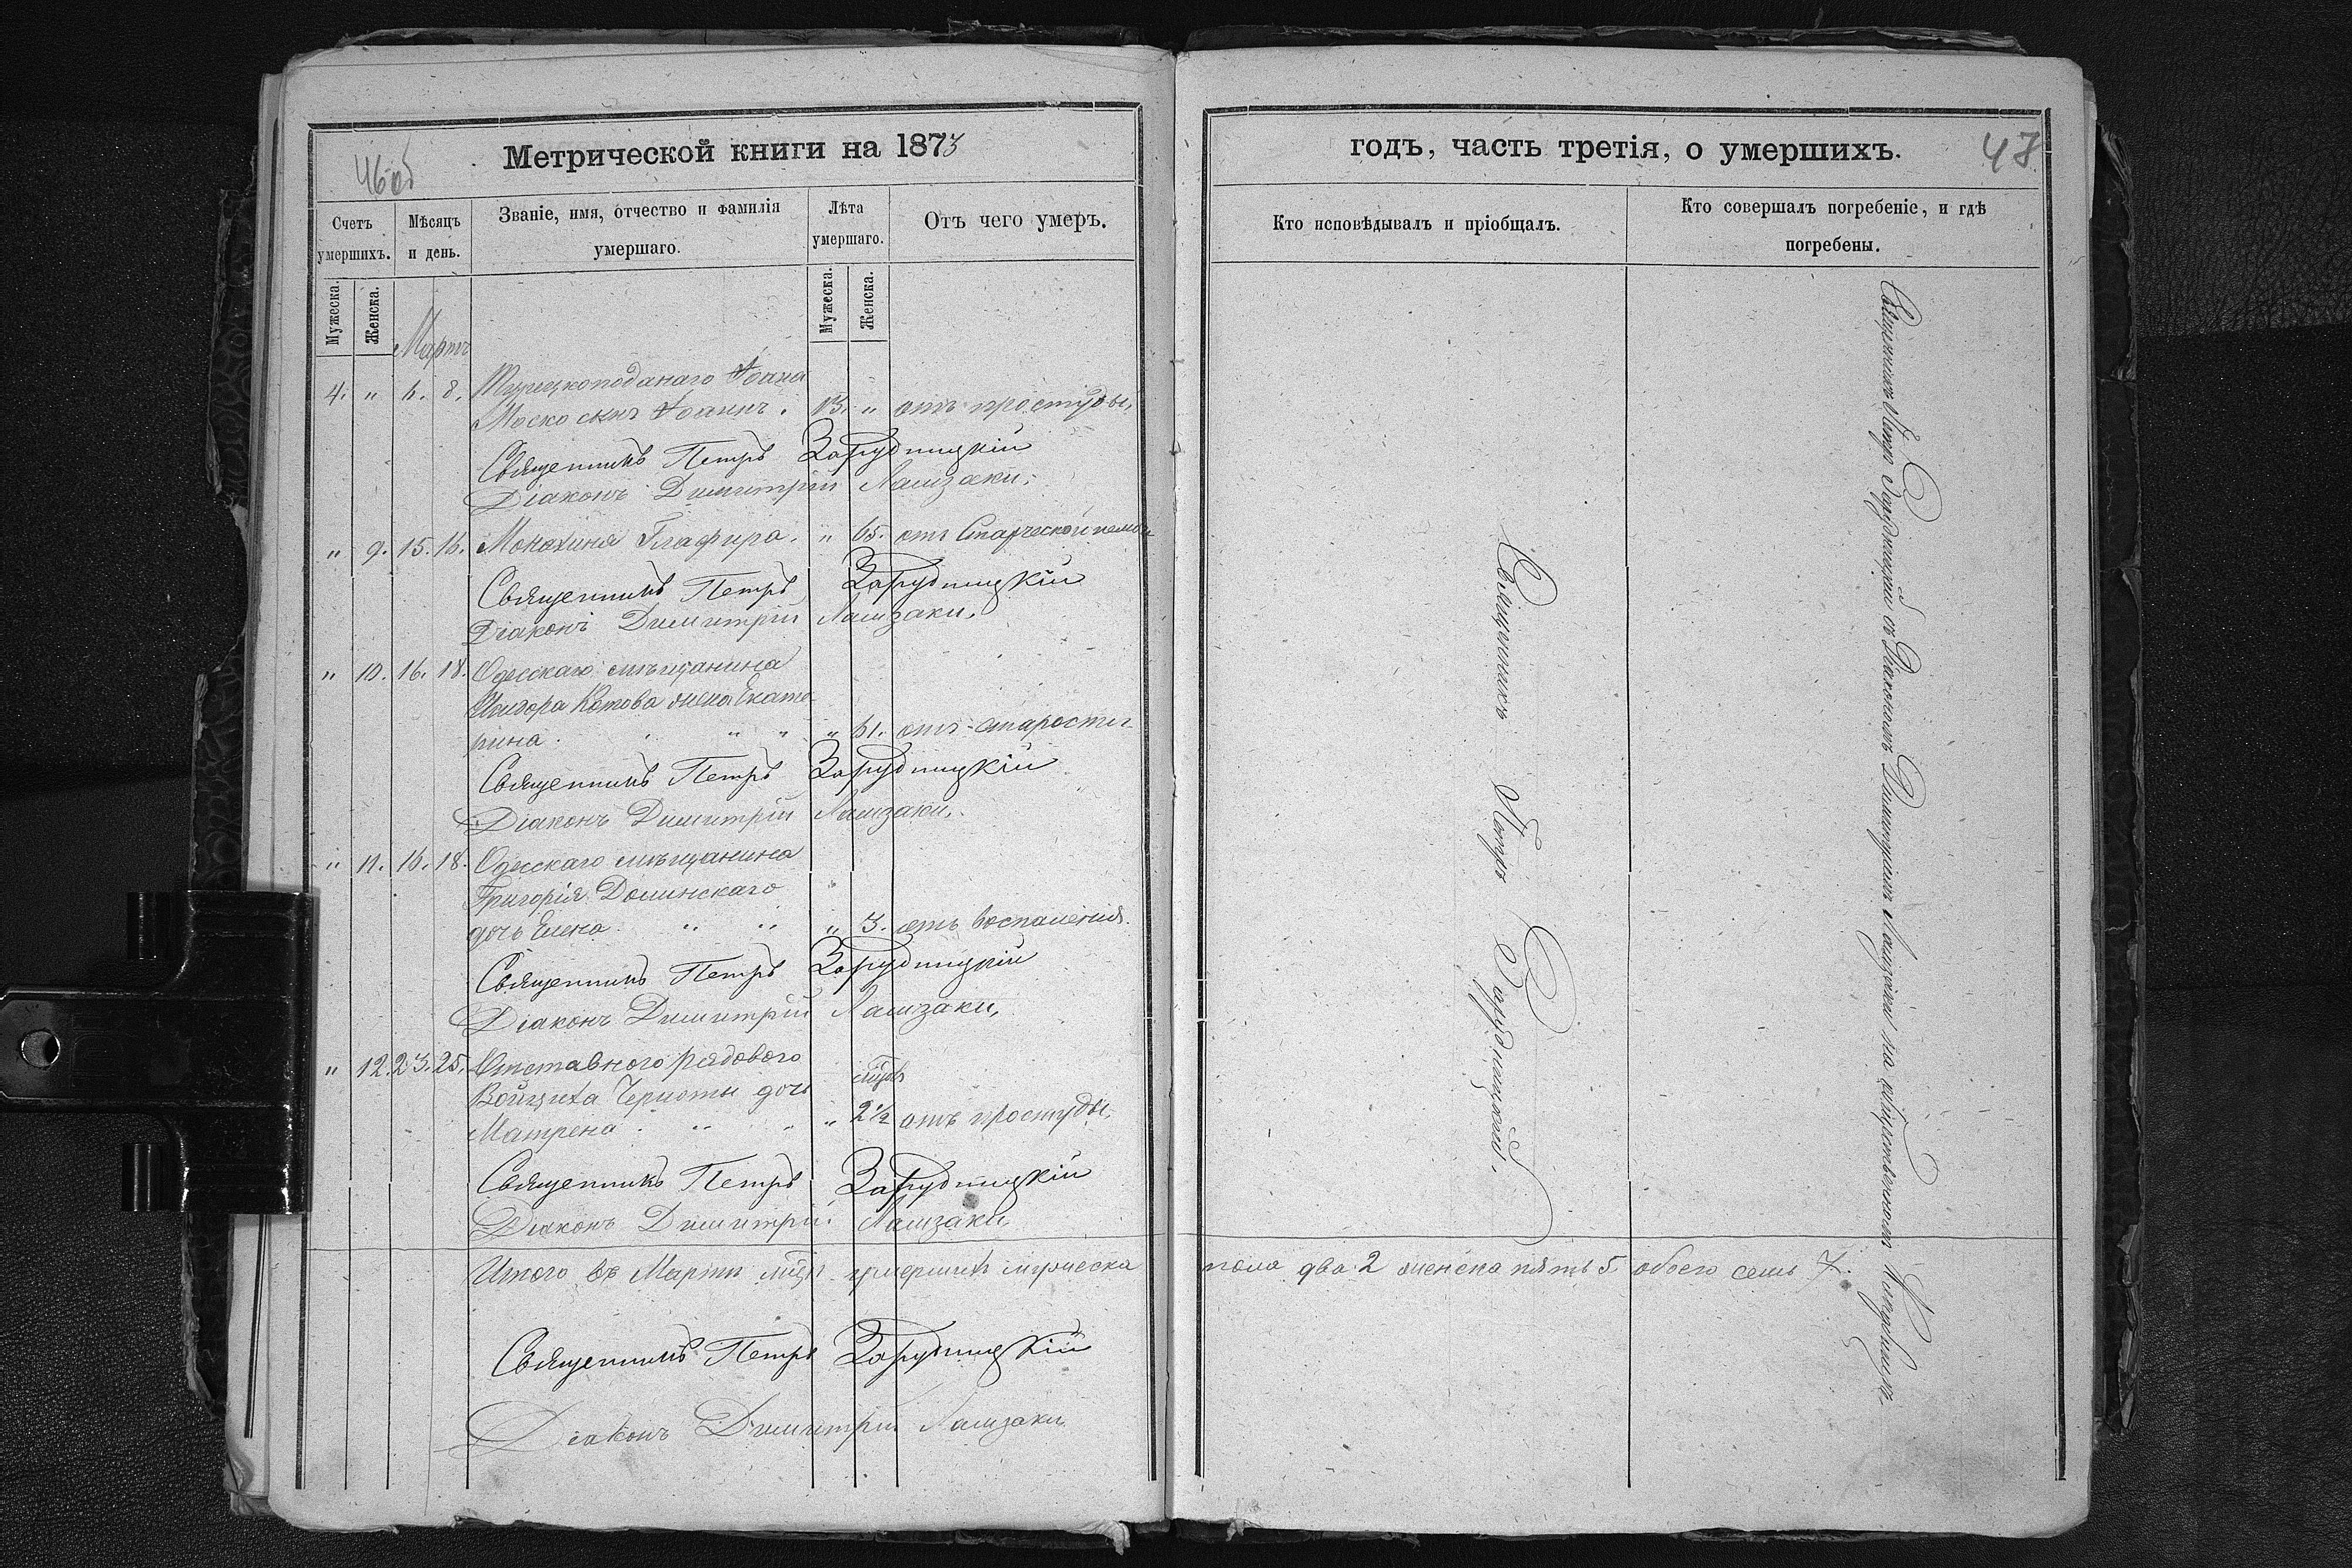 46 об
Метрической книги на 1873
Счетъ умершихъ.
Мѣсяцъ и день.
Званіе, имя, отчество и фамилія умершаго.
Лѣта умершаго.
Отъ чего умеръ.
Мужеска.
Женска.
Мужеска.
Женска.
Мартъ
4. " 6. 8. Турецкоподанаго Іоана
Моско сынъ Іоаннъ. 13. " отъ простуды,
Священникъ Петръ Зарудницкій
Діаконъ Димитрій Ламзаки.
" 9. 15. 16. Монахиня Глафира. " 65. отъ Старческой немощи
Священникъ Петръ Зарудницкій
Діаконъ Димитрій Ламзаки.
" 10. 16. 18. Одесскаго мѣщанина
Исидора Котова жена Екате-
рина. " " " 61. отъ старости
Священникъ Петръ Зарудницкій
Діаконъ Димитрій Ламзаки.
" 11. 16. 18. Одесскаго мѣщанина
Григорія Долинскаго
дочь Елена. " " " 3. отъ воспаленія.
Священникъ Петръ Зарудницкій
Діаконъ Димитрій Ламзаки,
" 12. 23. 25. Отставного рядового
Войцеха дочь мѣся
Матрена. " " " 2½ отъ простуды.
Священникъ Петръ Зарудницкій
Діаконъ Димитрій Ламзаки
Итого въ Мартѣ мѣся умершихъ мужеска
Священникъ Петръ Зарудницкій
Діаконъ Димитрій Ламзаки
годъ, часть третія, о умершихъ.
47
Кто исповѣдывалъ и пріобщалъ.
Кто совершалъ погребеніе, и гдѣ погребены.
Священникъ Петръ Зарудницкій.
Священникъ Петръ Зарудницкій съ Діакономъ Димитріемъ Ламзаки на общественномъ кладбищѣ.
пола два 2 женска пять 5 обоего семь 7.